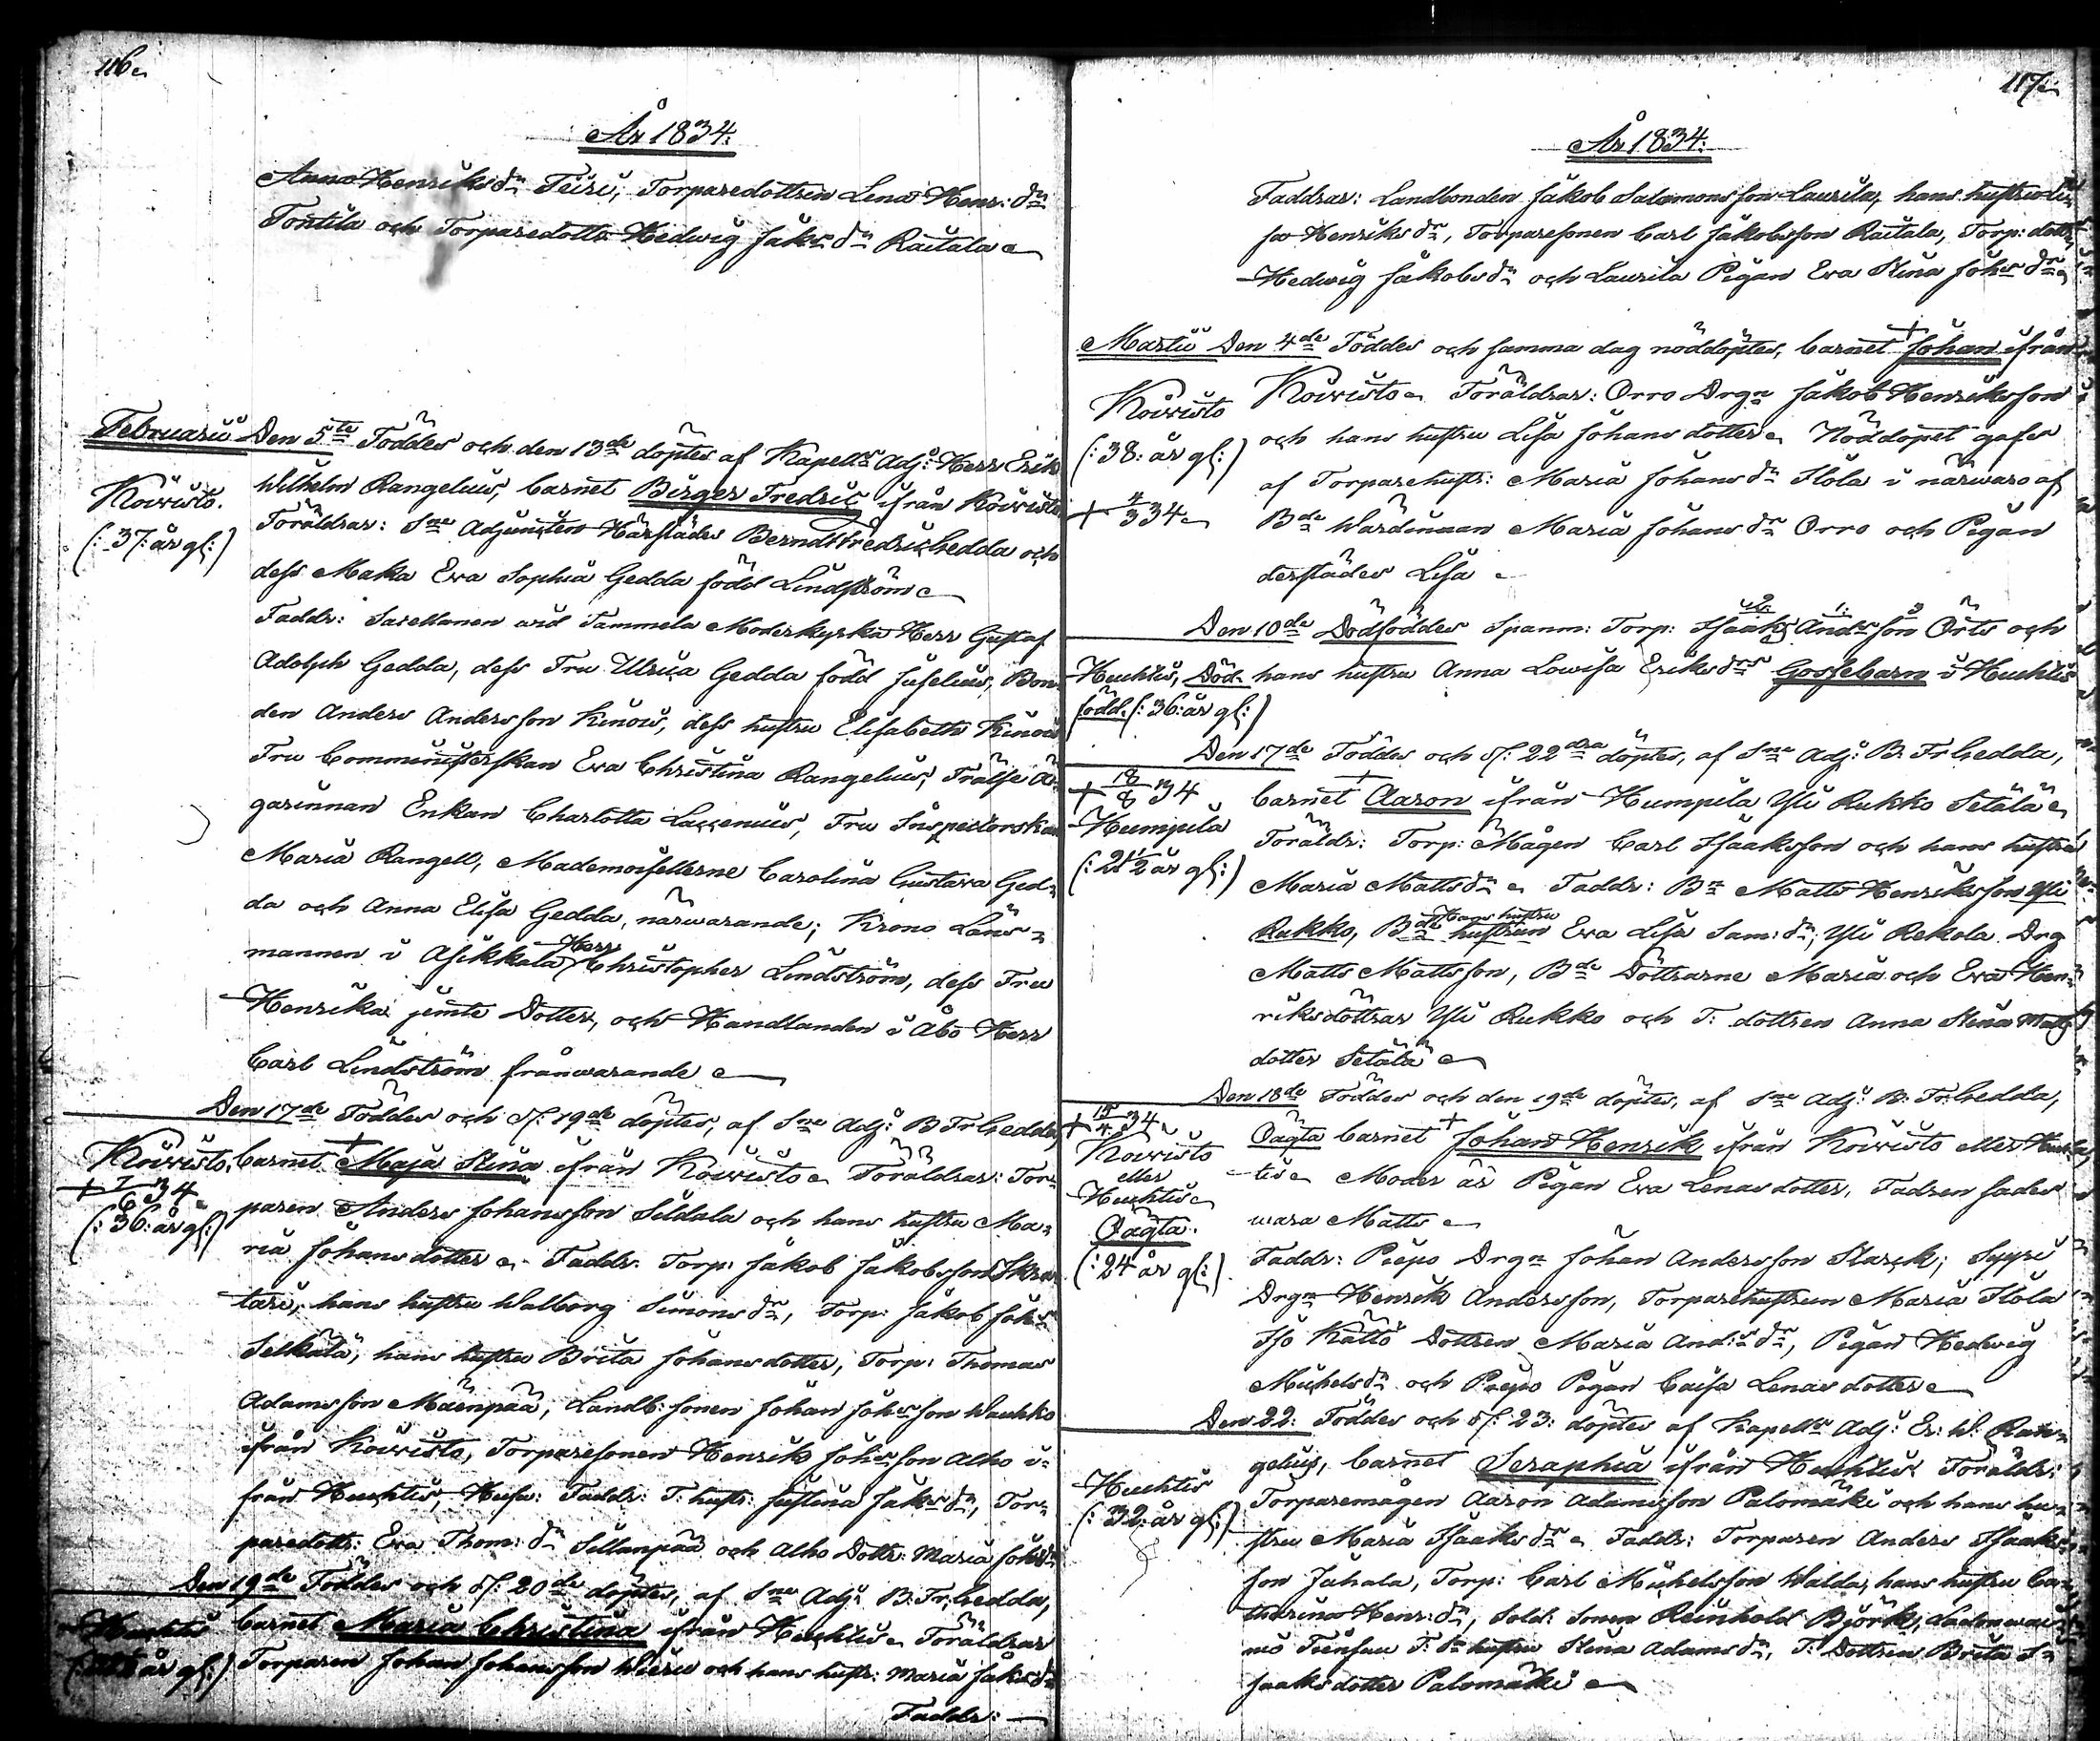 116.
År 1834.
Anna Henriksdr Teiri, Torparedottren Lena Henr: dr
Tontila och Torparedottr Hedwig Jaks dr Raitala
Februarii Den 5te Föddes och den 13de döptes af Kapells Adj: Herr Erik
Koivisto. Wilhelm Rangelius, barnet Birger Fredric ifrån Koivisto
(: 37: år gl:) Föräldrar: Sne Adjuncten Härstädes Berndt Fredric Gedda och
dess Maka Eva Sophia Gedda född Lindström
Faddr: Sacellanen wid Tammela Moderkyrka Herr Gustaf
Adolph Gedda, dess Fru Ulrica Gedda född Juselius, Bon-
den Anders Andersson Kinois, dess hustru Elisabeth Kinois
Fru Comministerskan Eva Christina Rangelius, Frälse Ä-
garinnan Enkan Charlotta Laccenius, Fru Inspectorskan
Maria Rangell, Mademoisellerne Carolina Gustava Ged-
da och Anna Elisa Gedda, närwarande; Krono Läns-
mannen i Asikkala Herr Christopher Lindström, dess Fru
Henrika jemte Dotter, och Handlanden i Åbo Herr
Carl Lindström frånwarande
Den 17de Föddes och d: 19de döptes, af Sne Adj: B Fr Gedda,
Koivisto. barnet + Maja Stina ifrån Koivisto Föräldrar: Tor-
+ 7/6 34. paren Anders Johansson Sildala och hans hustru Ma-
(: 36: år gl:) ria Johans dotter Faddr. Torp: Jakob Jakobsson Skrä-
täri, hans hustru Walborg Simons dr, Torp: Jakob Joh
Selkälä, hans hustru Brita Johans dotter, Torp: Thomas
Adamsson Mäenpää, Landb: sonen Johan Johsson Wauhko
ifrån Koivisto, Torparesonen Henrik Johsson Alho i-
från Huhtis, Faddr: T: hustr: Justina Jaks dr, Tor-
paredottr: Eva Thom: dr Sillanpää och Alho Dottr: Maria Johs dr
Den 19de Föddes och d: 20de döptes, af Sne Adj: B: Fr: Gedda,
Huhtis barnet Maria Christina ifrån Huchtis Föräldrar
år gl:) Torparen Johan Johansson Wieru och hans hustr: Maria Jaks dr
Faddr:
117.
År 1834.
Faddrar: Landbonden Jakob Salomonsson Laurila, hans hustru Li-
sa Henriks dr, Torparesonen Carl Jakobsson Raitala, Torp: dottr
Hedwig Jakobs dr och Laurila Pigan Eva Stina Johs dr
Martii Den 4de Föddes och samma dag nöddöptes, barnet + Johan ifrån
Koivisto Koivisto Föräldrar: Orro Drgn Jakob Henriksson
(: 38: år gl:) och hans hustru Lisa Johans dotter Nöddopet gafs
af Torparehustr: Maria Johans dr Ilola i närwaro af
+ 4/3 34. Bde Wärdinnan Maria Johans dr Orro och Pigan
derstädes Lisa
Den 10de Dödföddes Spanm: Torp: Isaak Andsson Örts och
Huchtis, Död- hans hustru Anna Lowisa Eriks drs Gossebarn i Huchtis
född. (: 36: år gl:)
Den 17de Föddes och d: 22dra döptes, af Sne Adj: B: Fr Gedda,
+ 18/8 34 barnet + Aaron ifrån Humpila Yli Rukko Setälä
Humpila Föräldr: Torp: Mågen Carl Isaaksson och hans hustru
(: 21 1/2 år gl:) Maria Matts dr Faddr: Bn Matts Henriksson Yli
Rukko, Bde hustrun Hans hustru Eva Lisa Sam: dr, Yli Rekola Drg
Matts Mattsson, Bde Döttrarne Maria och Eva Hen-
riksdöttrar Yli Rukko och T: dottren Anna Stina Matts
dotter Setälä
Den 18de Föddes och den 19de döptes, af Sne Adj: B: Fr: Gedda,
+ 18/4 34. Oägta barnet + Johan Henrik ifrån Koivisto eller Huch-
Koivisto eller Huchtis tis Moder är Pigan Eva Lenas dotter, Fadren sades
Oägta. wara Matts
(: 24 år gl:) Faddr: Piepo Drgn Johan Andersson Starck; Syyri
Drgn Henrik Andersson, Torparehustrun Maria Ilola
Iso Kättö Dottren Maria Ands dr, Pigan Hedwig
Michels dr och Piepo Pigan Caisa Lenas dotter
Den 22: Föddes och d: 23: döptes af Kapells Adj: Er: W: Ran-
gelius, barnet Seraphia ifrån Huchtis Föräldr:
Huchtis Torparemågen Aaron Adamsson Palomäki och hans hu-
(: 32: år gl:) stru Maria Isaaks dr Faddr: Torparen Anders Isaaks-
son Juhala, Torp: Carl Michelsson Walda, hans hustru Ca-
tharina Henr: dr, Sold: Sonen Reinhold Björk,
hustru Stina Adams dr, T: Dottren Brita I-
saaks dotter Palomäki